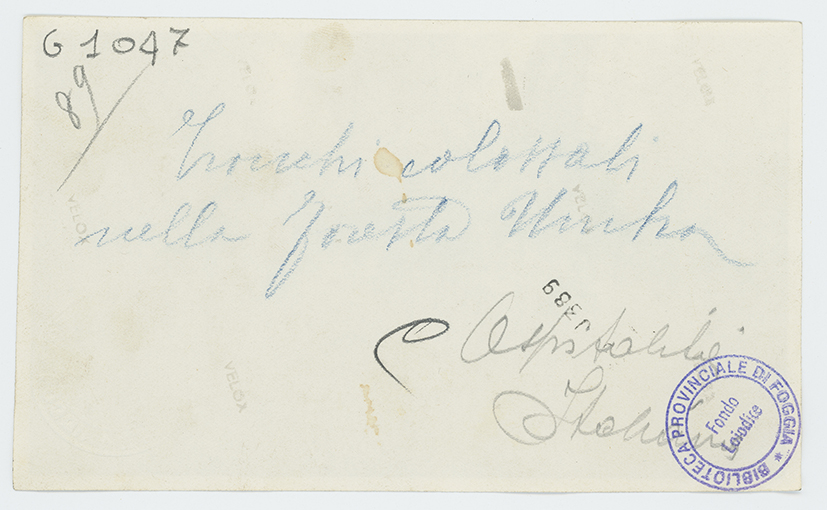 G 1047
89
Tronchi colossali
nella foresta Umbra
J 389
Ospitalità
Italiana
BIBLIOTECA PROVINCIALE DI FOGGIA *
Fondo
Loiodice
VELOX
VELOX
VELOX
VELOX
VELOX